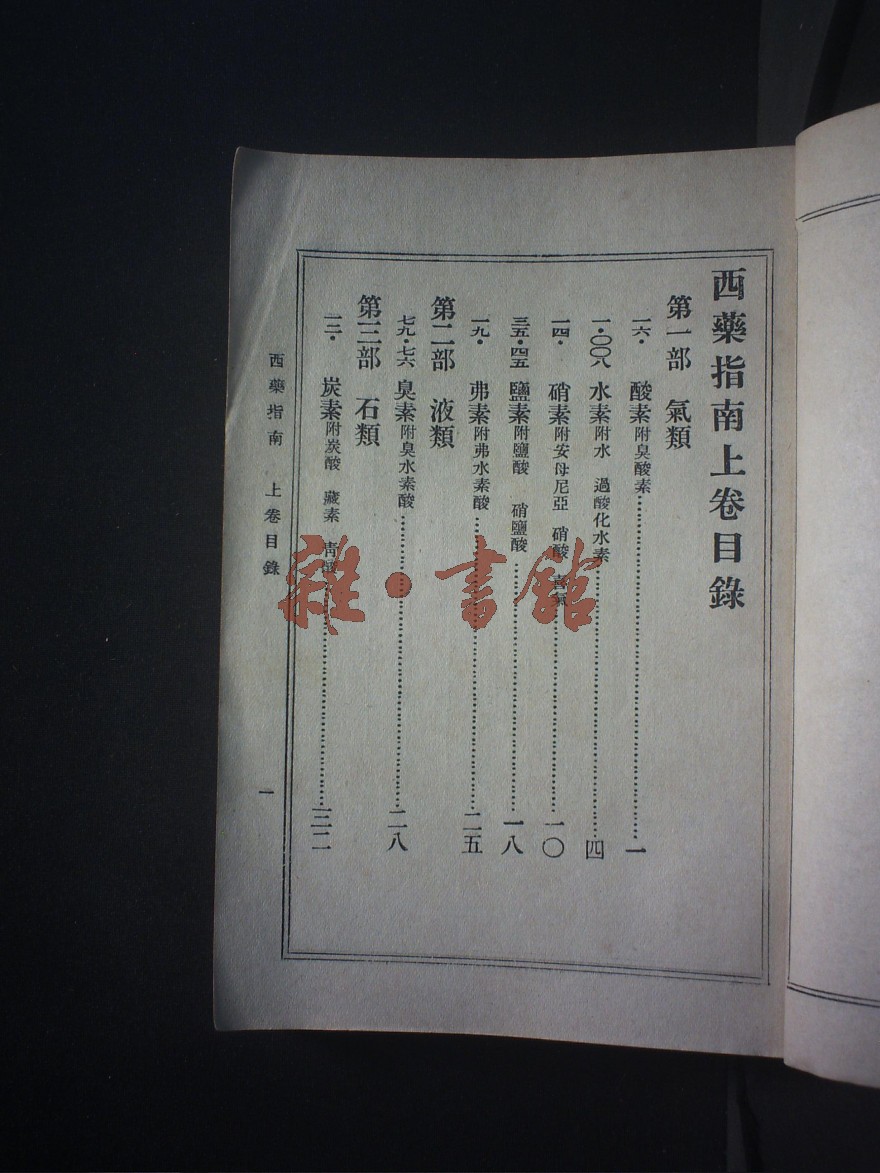 西藥指南上卷目錄
第一部 氣類
一六· 酸素附臭酸素……一
一·〇〇八 水素附水 過酸化水素……四
一四· 硝素附安母尼亞 硝酸……一〇
三五·四五 鹽素附鹽酸 硝鹽酸……一八
一九· 弗素附弗水素酸……二五
第二部 液類
七九·七六 臭素附臭水素酸……二八
第三部 石類
一二· 炭素附炭酸 藏素 青酸……三二
西藥指南 上卷目錄 一
雜·書館